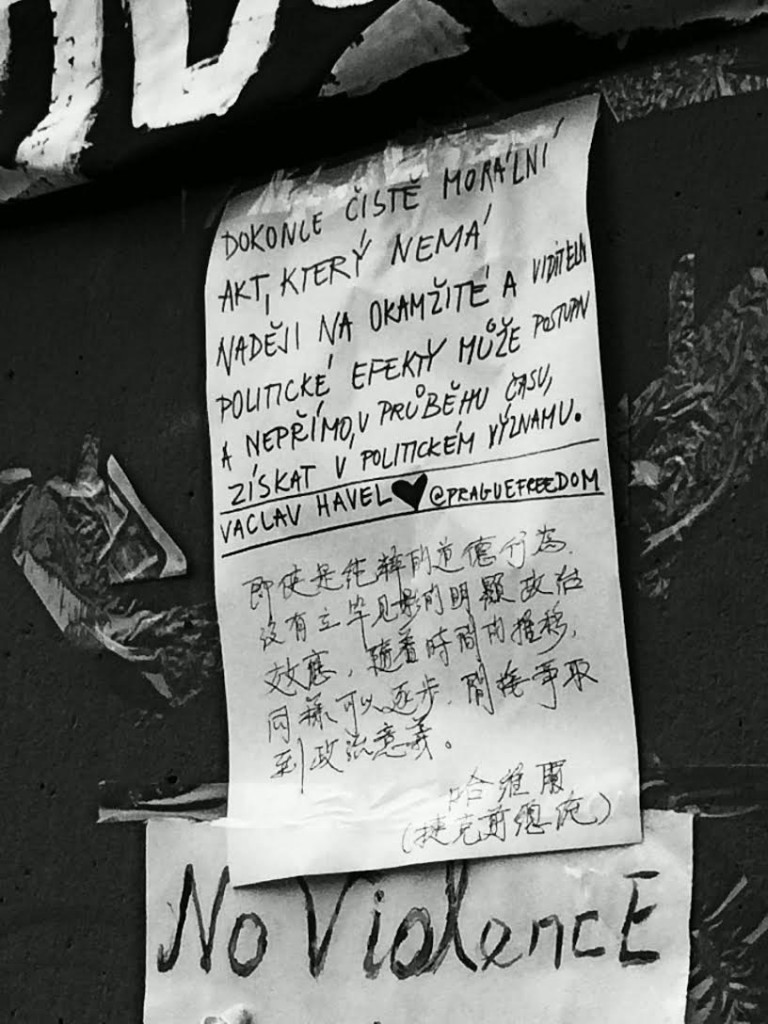 DOKONCE ČISTĚ MORÁLNÍ
AKT, KTERÝ NEMÁ
NADĚJI NA OKAMŽITÉ A VIDITELN
POLITICKÉ EFEKTY MŮŽE POSTUPN
A NEPŘÍMO, V PRŮBĚHU ČASU,
ZÍSKAT V POLITICKÉM VÝZNAMU.
VACLAV HAVEL♥@PRAGUEFREEDOM
即使是純粹的道德行為,
沒有立竿见影的明顯政治
效應,隨着時間的推移,
同樣可以逐步、間接爭取
到政治意義。
哈維爾
(捷克前總統)
No ViolencE